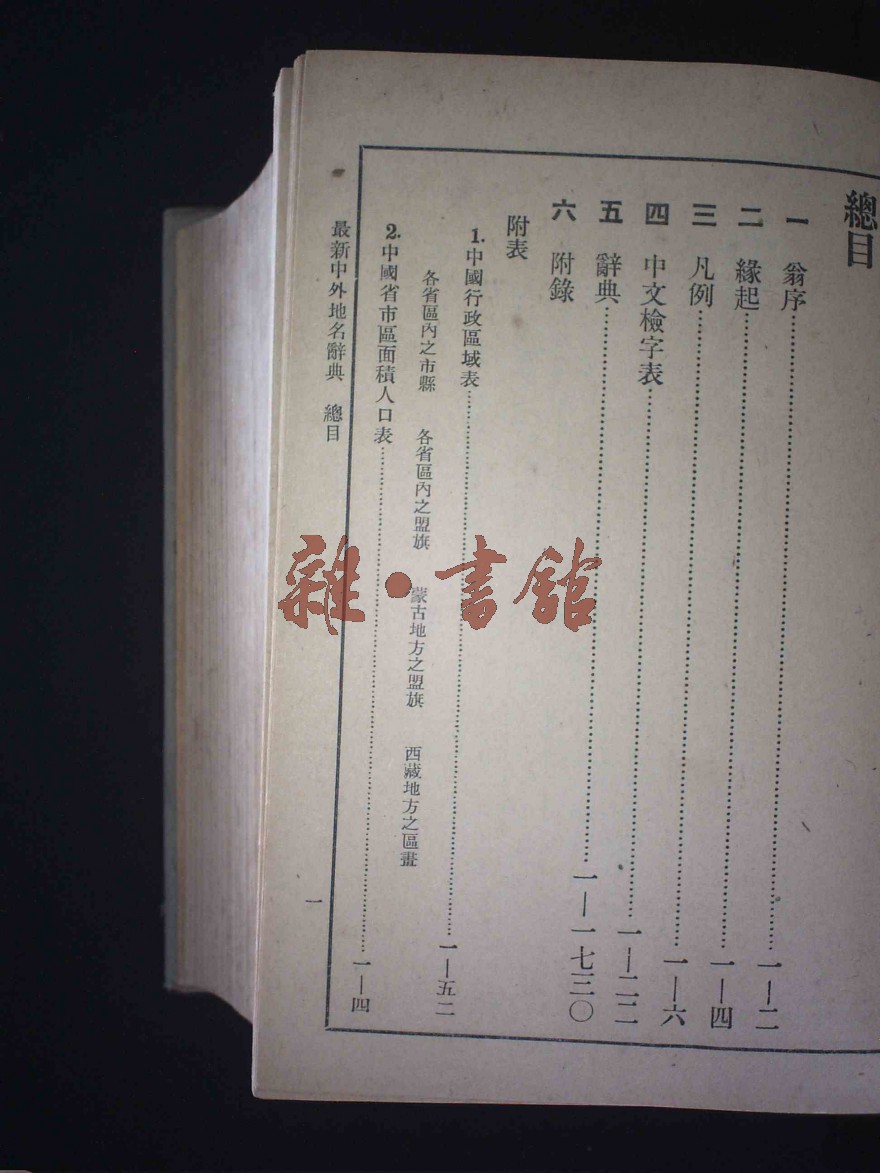 總目
一 翁序 一—二
二 緣起 一—四
三 凡例 一—六
四 中文檢字表 一—二二
五 辭典 一—一七三〇
六 附錄
附表
1.中國行政區域表 一—五二
各省區內之市縣 各省區內之盟旗 蒙古地方之盟旗 西藏地方之區畫
2.中國省市區面積人口表 一—四
最新中外地名辭典 總目 一
雜·書館